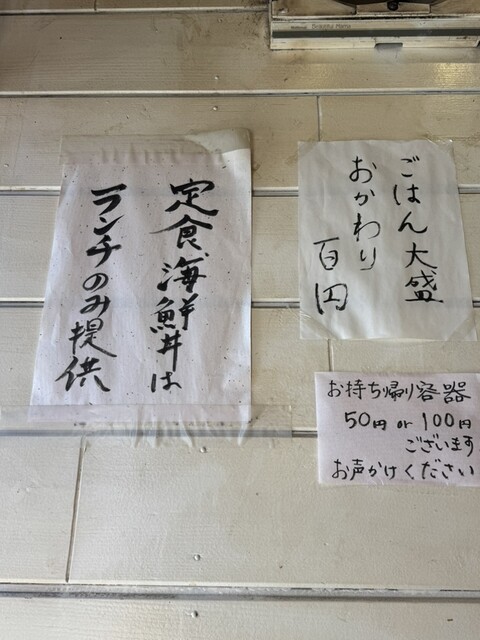 定食海鮮丼は
ランチのみ提供
ごはん大盛
おかわり
百円
お持ち帰り容器
50円 or 100円
ございます
お声かけください